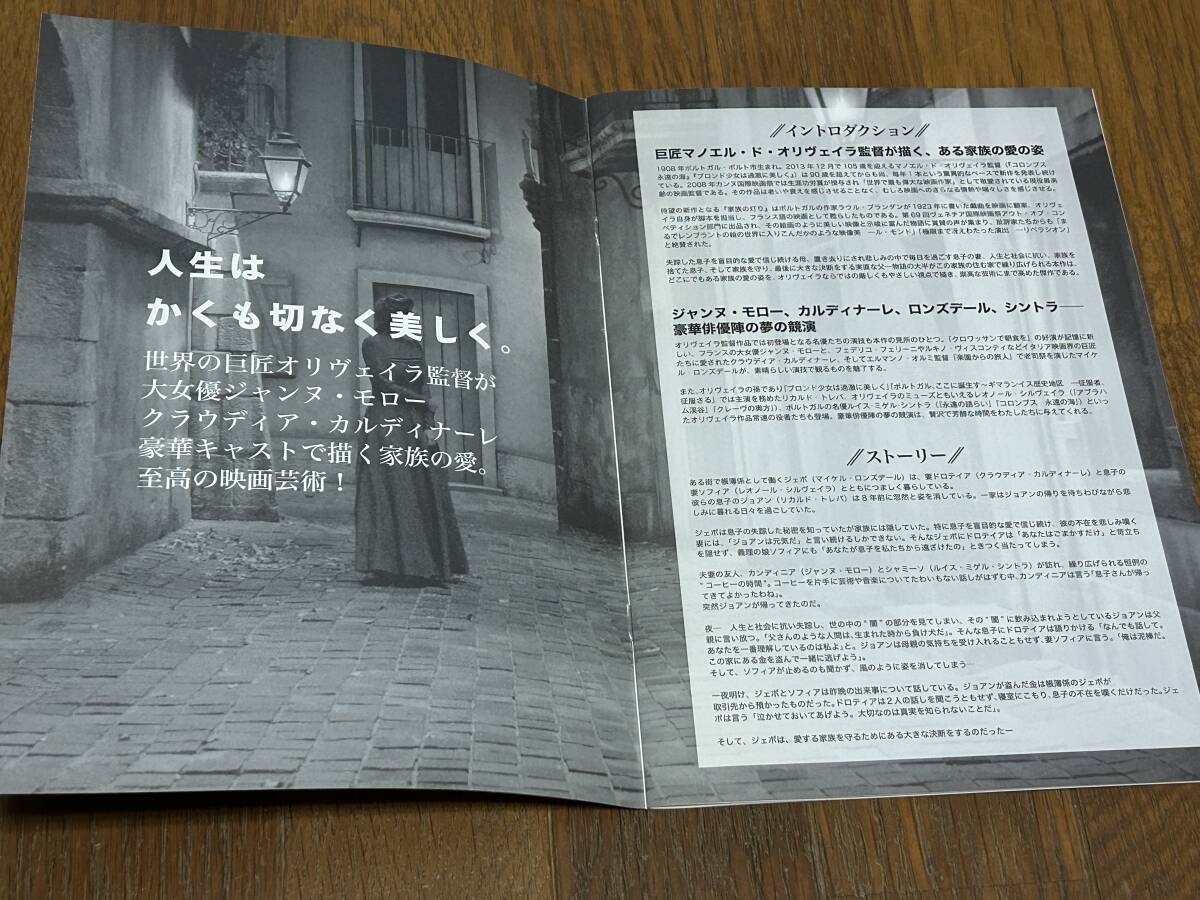 人生は
かくも切なく美しく。
世界の巨匠オリヴェイラ監督が
大女優ジャンヌ・モロー
クラウディア・カルディナーレ
豪華キャストで描く家族の愛。
至高の映画芸術！
イントロダクション
巨匠マノエル・ド・オリヴェイラ監督が描く、ある家族の愛の姿
1908年ポルトガル・ポルト市生まれ。2013年12月で105歳を迎えるマノエル・ド・オリヴェイラ監督（『コロンブス
永遠の海』『ブロンド少女は過激に美しく』）は90歳を超えてからも尚、毎年1本という驚異的なペースで新作を発表し続け
ている。2008年カンヌ国際映画祭では生涯功労賞が授与され「世界で最も偉大な映画作家」として敬愛されている現役最高
齢の映画監督である。その作品は老いや衰えを感じさせることなく、むしろ映画へのさらなる情熱や瑞々しさを感じさせる。
待望の新作となる『家族の灯り』はポルトガルの作家ラウル・ブランダンが1923年に書いた戯曲を映画に翻案、オリヴェ
イラ自身が脚本を担当し、フランス語の映画として甦らしたものである。第69回ヴェネチア国際映画祭アウト・オブ・コン
ペティション部門に出品され、その絵画のように美しい映像と示唆に富んだ物語に賞賛の声が集まり、批評家たちからも「ま
るでレンブラントの絵の世界に入りこんだかのような映像美　―ル・モンド」「極限まで冴えわたった演出　―リベラシオン」
と絶賛された。
失踪した息子を盲目的な愛で信じ続ける母、置き去りにされ悲しみの中で毎日を過ごす息子の妻、人生と社会に抗い、家族を
捨てた息子、そして家族を守り、最後に大きな決断をする実直な父―物語の大半がこの家族の住む家で繰り広げられる本作は、
どこにでもある家族の愛の姿を、オリヴェイラならではの厳しくもやさしい視点で描き、崇高な芸術にまで高めた傑作である。
ジャンヌ・モロー、カルディナーレ、ロンズデール、シントラ――
豪華俳優陣の夢の競演
オリヴェイラ監督作品では初登場となる名優たちの演技も本作の見所のひとつ。『クロワッサンで朝食を』の好演が記憶に新
しい、フランスの大女優ジャンヌ・モローと、フェデリコ・フェリーニやルキノ・ヴィスコンティなどイタリア映画界の巨匠
たちに愛されたクラウディア・カルディナーレ、そしてエルマンノ・オルミ監督『楽園からの旅人』で老司祭を演じたマイケ
ル・ロンズデールが、素晴らしい演技で観るものを魅了する。
また、オリヴェイラの孫であり『ブロンド少女は過激に美しく』『ポルトガル、ここに誕生す～ギマランイス歴史地区　―征服者、
征服さる』では主演を務めたリカルド・トレパ、オリヴェイラのミューズともいえるレオノール・シルヴェイラ（『アブラハ
ム渓谷』『クレーヴの奥方』）、ポルトガルの名優ルイス・ミゲル・シントラ（『永遠の語らい』『コロンブス　永遠の海』）といっ
たオリヴェイラ作品常連の役者たちも登場。豪華俳優陣の夢の競演は、贅沢で芳醇な時間をわたしたちに与えてくれる。
ストーリー
ある街で帳簿係として働くジェボ（マイケル・ロンズデール）は、妻ドロテイア（クラウディア・カルディナーレ）と息子の
妻ソフィア（レオノール・シルヴェイラ）とともにつましく暮らしている。
彼らの息子のジョアン（リカルド・トレパ）は8年前に忽然と姿を消している。一家はジョアンの帰りを待ちわびながら悲
しみに暮れる日々を過ごしていた。
ジェボは息子の失踪した秘密を知っていたが家族には隠していた。特に息子を盲目的な愛で信じ続け、彼の不在を悲しみ嘆く
妻には、「ジョアンは元気だ」と言い続けるしかできない。そんなジェボにドロテイアは「あなたはごまかすだけ」と苛立ち
を隠せず、義理の娘ソフィアにも「あなたが息子を私たちから遠ざけたの」ときつく当たってしまう。
夫妻の友人、カンディニア（ジャンヌ・モロー）とシャミーソ（ルイス・ミゲル・シントラ）が訪れ、繰り広げられる恒例の
“コーヒーの時間”。コーヒーを片手に芸術や音楽についてたわいもない話しがはずむ中、カンディニアは言う「息子さんが帰っ
てきてよかったわね」。
突然ジョアンが帰ってきたのだ。
夜―　人生と社会に抗い失踪し、世の中の“闇”の部分を見てしまい、その“闇”に飲み込まれようとしているジョアンは父
親に言い放つ。「父さんのような人間は、生まれた時から負け犬だ」。そんな息子にドロテイアは語りかける「なんでも話して。
あなたを一番理解しているのは私よ」と。ジョアンは母親の気持ちを受け入れることもせず、妻ソフィアに言う。「俺は泥棒だ。
この家にある金を盗んで一緒に逃げよう」。
そして、ソフィアが止めるのも聞かず、風のように姿を消してしまう―
一夜明け、ジェボとソフィアは昨晩の出来事について話している。ジョアンが盗んだ金は帳簿係のジェボが
取引先から預かったものだった。ドロティアは2人の話しを聞こうともせず、寝室にこもり、息子の不在を嘆くだけだった。ジェ
ボは言う「泣かせておいてあげよう。大切なのは真実を知られないことだ」。
そして、ジェボは、愛する家族を守るためにある大きな決断をするのだったー